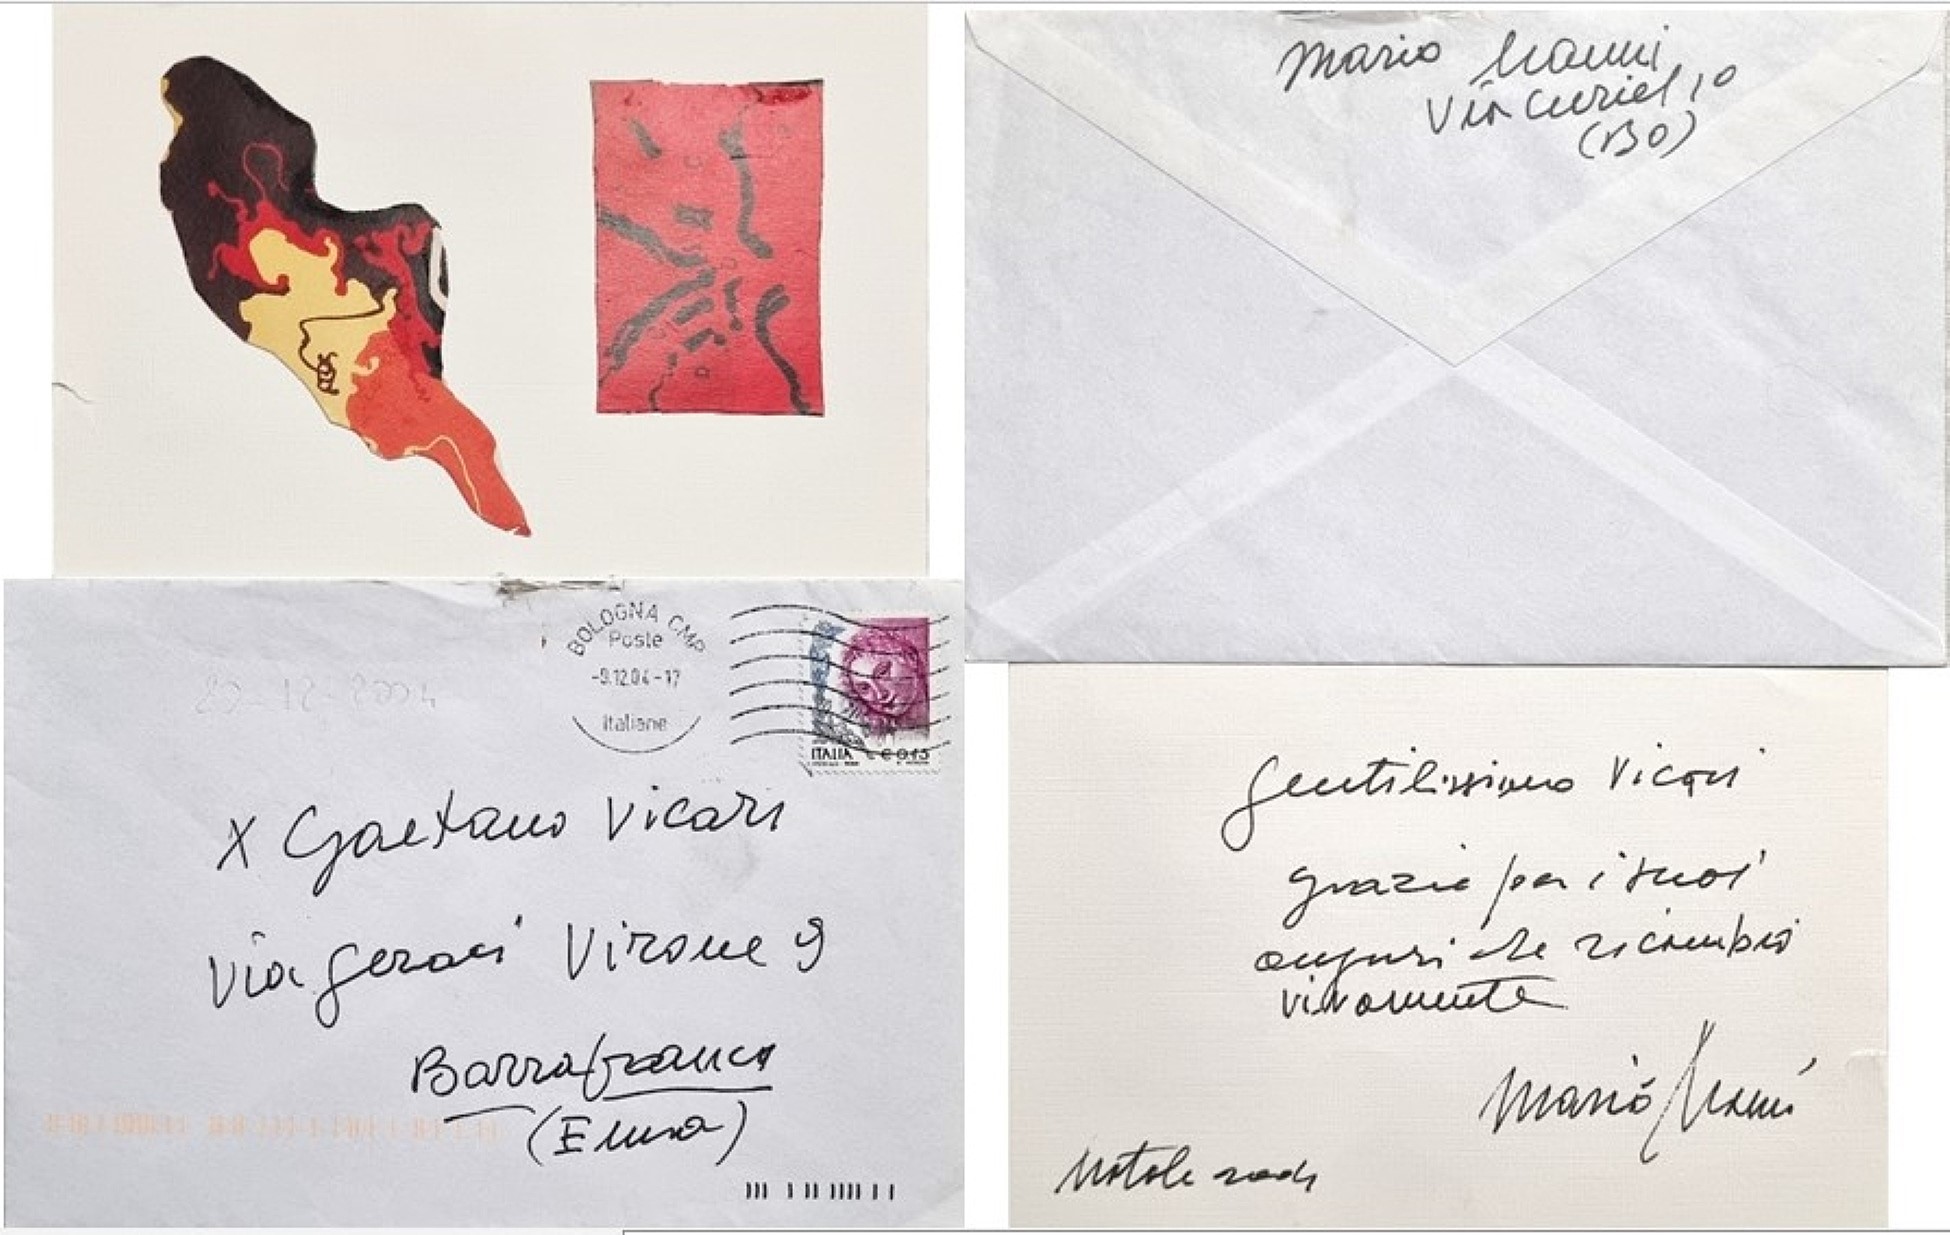 Mario Nanni
Via Curiel, 10
(BO)
BOLOGNA CMP
Poste
-9.12.04-17
Italiane
20-12-2004
ITALIA € 0,45
X Gaetano Vicari
Via Geraci Virone 9
Barrafranca
(Enna)
Gentilissimo Vicari
grazie per i suoi
auguri che ricambio
vivamente
Mario Nanni
Natale 2004